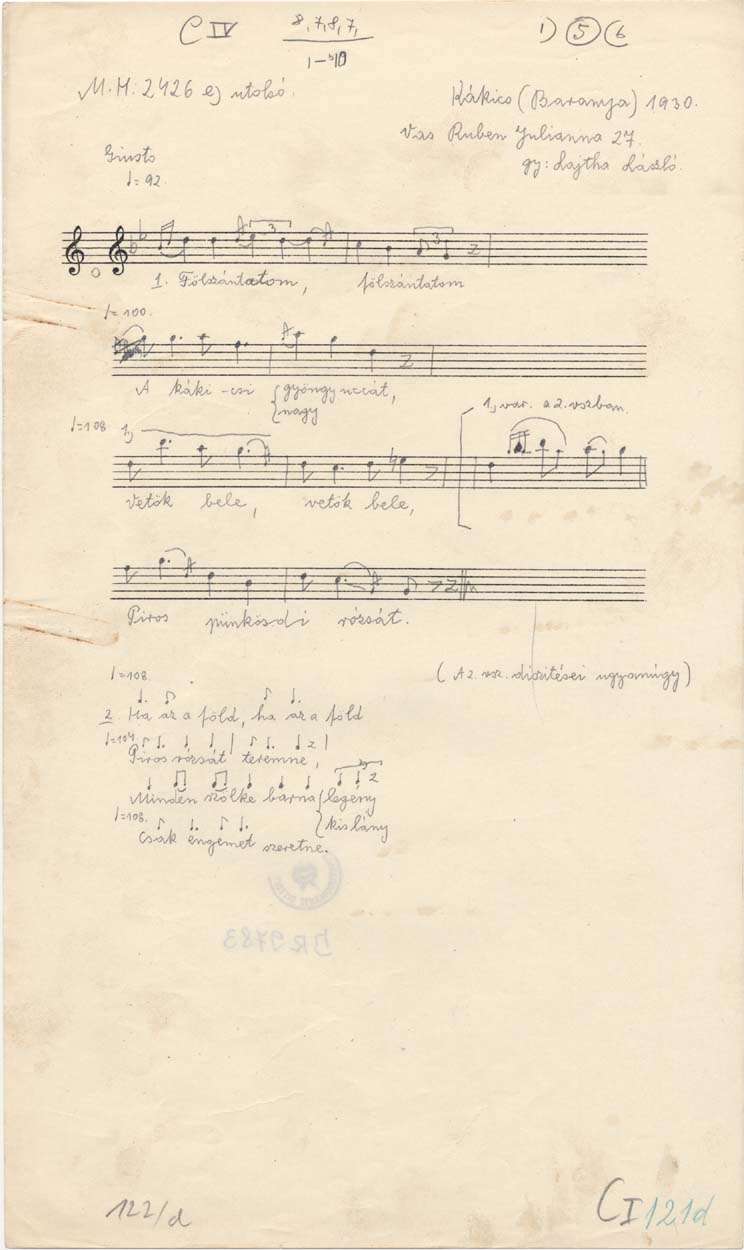 C IV 8, 7, 8, 7, 1) 5 6
1–♭10
M.H: 2426 e) utolsó.
Kákics (Baranya) 1930.
Vas Ruben Julianna 27.
gy: Lajtha László.
Giusto
♩= 92.
3 3
1. Fölszántatom, fölszántatom
♩= 100.
A káki-csi { gyöngy uccát,
nagy
♩=108 1,
1, var. a 2. vszban.
Vetök bele, vetök bele,
Piros pünkös-di rózsát.
♩=108.
(A 2. vsz. díszítései ugyanúgy)
2. Ha az a föld, ha az a föld
♩=104.
Piros rózsát teremne,
Minden szőlke barna { legény
♩=108.
kislány
Csak engemet szeretne.
BR 9783
122/d
CI 121d